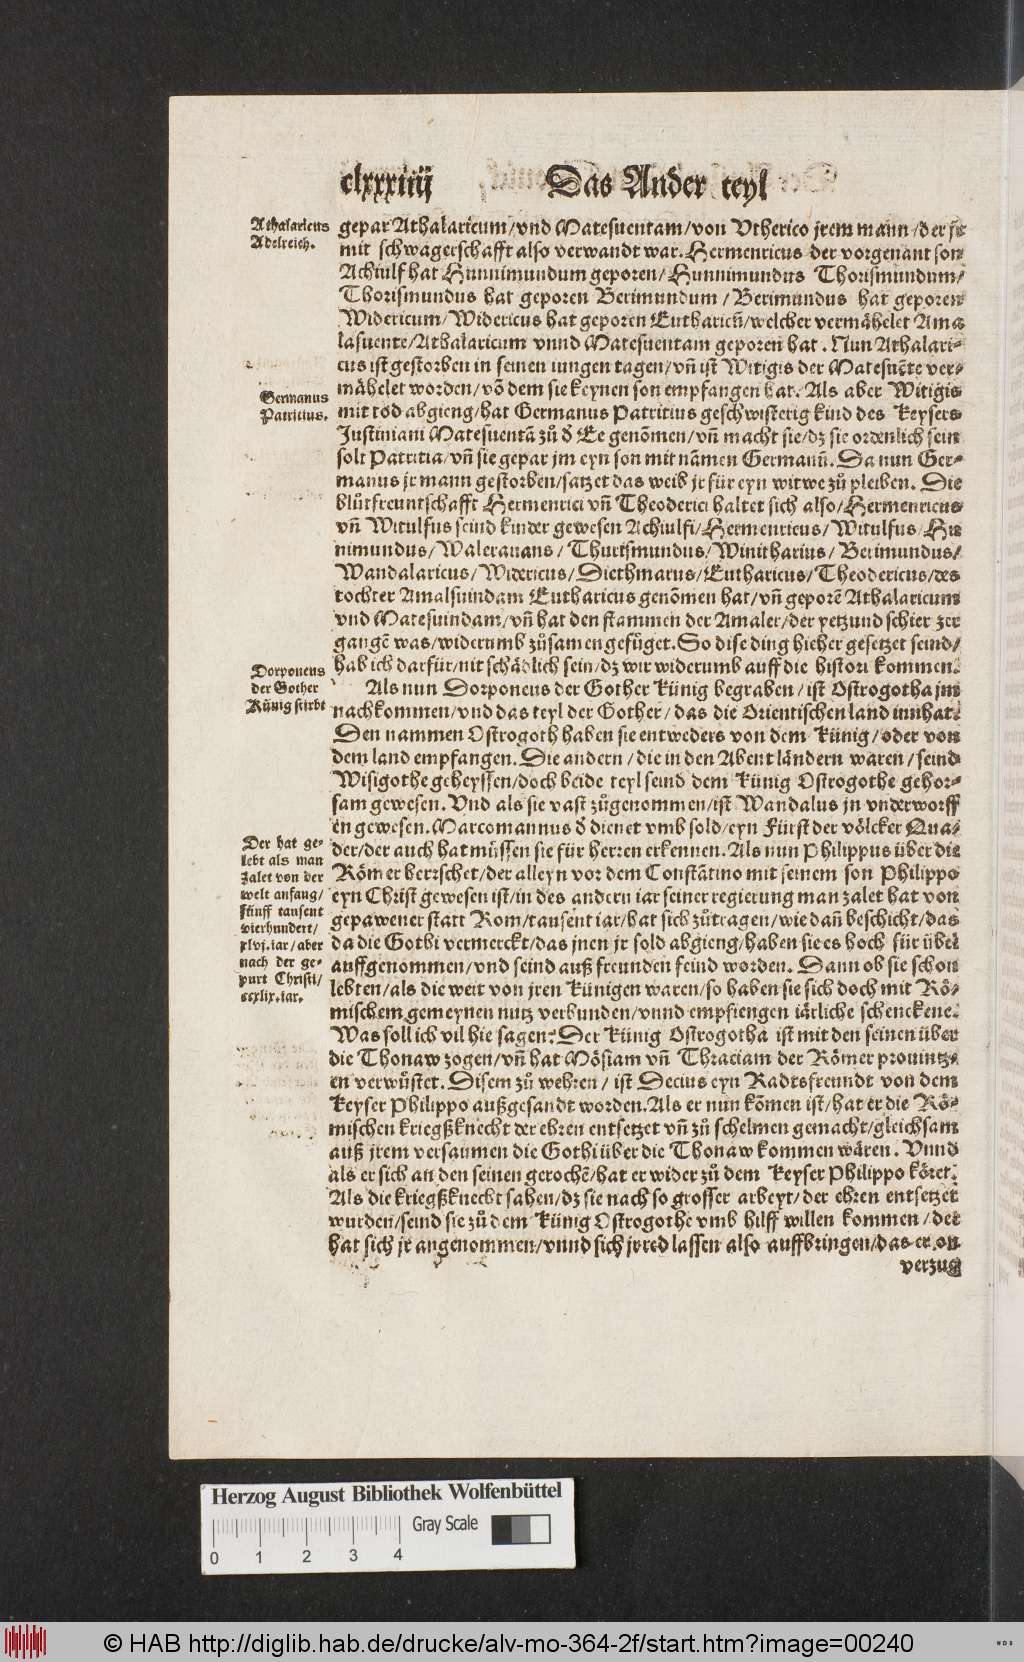 clxxxiiij Das Ander teyl
Athalaricus
Adelreich.
gepar Athalaricum/vnd Matesuentam/von Vtherico jrem mann/der jr
mit schwagerschafft also verwandt war. Hermenricus der vorgenant son
Achiulf hat Hunnimundum geporen/Hunnimundus Thorismundum/
Thorismundus hat geporen Berimundum/Berimundus hat geporen
Widericum/Widericus hat geporen Eutharicū/welcher vermähelet Ama
lasuente/Athalaricum vnnd Matesuentam geporen hat. Nun Athalari-
cus ist gestorben in seinen iungen tagen/vñ ist Witigis der Matesuēte ver-
mähelet worden/vō dem sie keynen son empfangen hat. Als aber Witigis
Germanus
Patritius.
mit tod abgieng/hat Germanus Patritius geschwisterig kind des Keysers
Justiniani Matesuentā zů d̄ Ee genōmen/vñ macht sie/dz sie ordenlich sein
solt Patritia/vñ sie gepar jm eyn son mit nāmen Germanū. Da nun Ger-
manus jr mann gestorben/satzet das weib jr für eyn witwe zů pleiben. Die
blůtfreuntschafft Hermenrici vñ Theoderici haltet sich also/Hermenricus
vñ Witulfus seind kinder gewesen Achiulfi/Hermenricus/Witulfus/Hu
nimundus/Walerauans/Thurismundus/Winitharius/Berimundus/
Wandalaricus/Widericus/Diethmarus/Eutharicus/Theodericus/des
tochter Amalsuindam Eutharicus genōmen hat/vñ geporē Athalaricum
vnd Matesuindam/vñ hat den stammen der Amaler/der yetzund schier zer
gangē was/widerumb zůsamen gefüget. So dise ding hieher gesetzet seind/
hab ich darfür/nit schädlich sein/dz wir widerumb auff die histori kommen.
Dorponeus
der Gother
Künig stirbt
Als nun Dorponeus der Gother Künig begraben/ist Ostrogotha jm
nachkommen/vnd das teyl der Gother/das die Orientischen land innhat.
Den nammen Ostrogoth haben sie entweders von dem Künig/oder von
dem land empfangen. Die andern/die in den Abent ländern waren/seind
Wisigothe geheyssen/doch beide teyl seind dem Künig Ostrogothe gehor-
sam gewesen. Vnd als sie vast zůgenommen/ist Wandalus jn vnderworff
en gewesen. Marcomannus d̄ dienet vmb sold/eyn Fürst der völcker Qua-
Der hat ge-
lebt als man
zalet von der
welt anfang/
fünff tausent
vierhundert/
xlvj. iar/aber
nach der ge-
purt Christi/
ccxlix. iar.
der/der auch hat müssen sie für herren erkennen. Als nun Philippus über die
Römer herrschet/der alleyn vor dem Constātino mit seinem son Philippo
eyn Christ gewesen ist/in des andern iar seiner regierung man zalet hat von
gepawener statt Rom/tausent iar/hat sich zůtragen/wie dañ beschicht/das
da die Gothi vermerckt/das jnen jr sold abgieng/haben sie es hoch für übel
auffgenommen/vnd seind auß freunden feind worden. Dann ob sie schon
lebten/als die weit von jren Künigen waren/so haben sie sich doch mit Rö-
mischem gemeynen nutz verbunden/vnnd empfiengen iärliche schenckene.
Was soll ich vil hie sagen? Der Künig Ostrogotha ist mit den seinen über
die Thonaw zogen/vñ hat Mösiam vñ Thraciam der Römer prouintz-
en verwůstet. Disem zů wehren/ist Decius eyn Radtsfreundt von dem
Keyser Philippo außgesandt worden. Als er nun kōmen ist/hat er die Rö-
mischen kriegßknecht der ehren entsetzet vñ zů schelmen gemacht/gleichsam
auß jrem versaumen die Gothi über die Thonaw kommen wären. Vnnd
als er sich an den seinen gerochē/hat er wider zů dem Keyser Philippo köret.
Als die kriegßknecht sahen/dz sie nach so grosser arbeyt/der ehren entsetzet
wurden/seind sie zů dem Künig Ostrogothe vmb hilff willen kommen/der
hat sich jr angenommen/vnnd sich jr red lassen also auffbringen/das er on
verzug
Herzog August Bibliothek Wolfenbüttel
Gray Scale
0 1 2 3 4
© HAB http://diglib.hab.de/drucke/alv-mo-364-2f/start.htm?image=00240